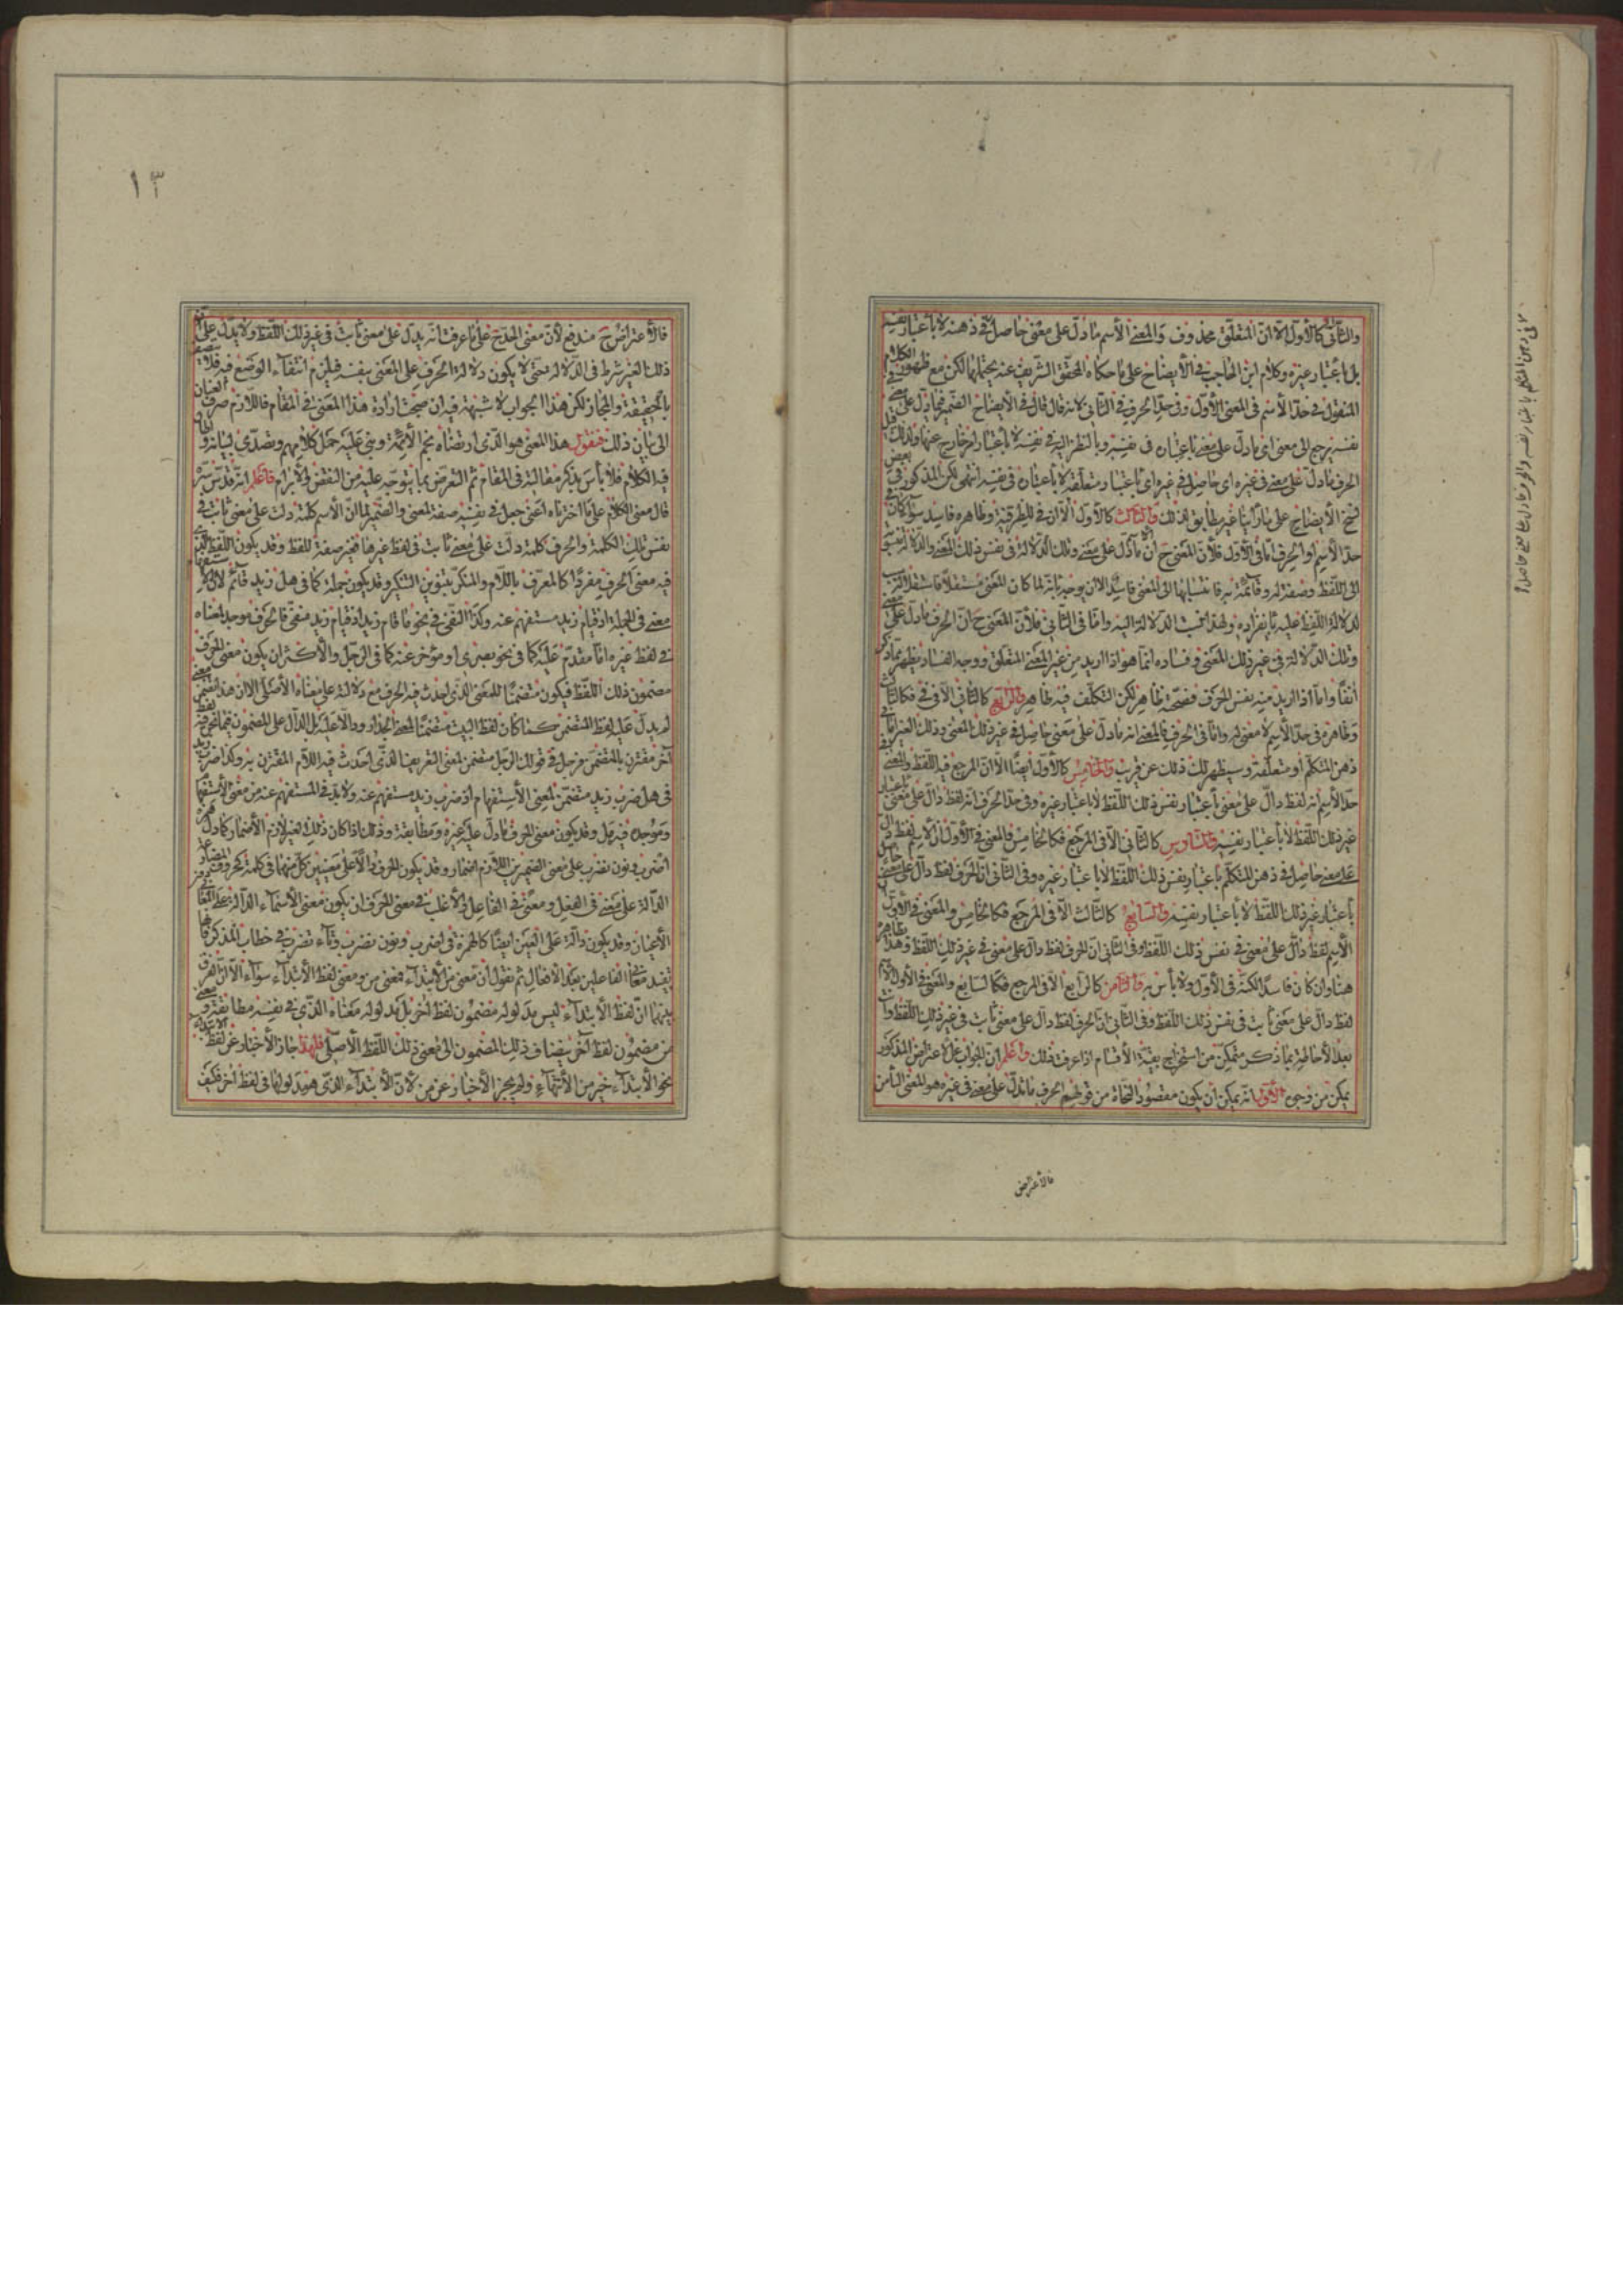 والثانی کالأول الا ان المتعلق محذوف والمعنی الأسم ما دل علی معنی حاصل فی ذهنه لا بأعتبار نفسه
بل بأعتبار غیره وکلام ابن الحاجب فی الأیضاح علی ما حکاه المحقق الشریف عنه یحتملهما لکن مع ظهور الکلام
المنقول فی حد الأسم فی المعنی الأول وفی حد الحرف فی الثانی لانه قال قال فی الأیضاح الضمیر فی ما دل علی معنی فی
نفسه یرجع الی معنی ای ما دل علی معنی باعتباره فی نفسه وبالنظر الیه فی نفسه لا بأعتبار امر خارج عنه ولذلک قیل
الحرف ما دل علی معنی فی غیره ای حاصل فی غیره ای باعتبار متعلقه لا بأعتباره فی نفسه انتهی لکن المذکور فی بعض
نسخ الأیضاح علی ما رأینا غیر مطابق لذلک والثالث کالأول الا ان فی للظرفیة وظاهره فاسد سواء کان فی
حد الأسم او الحرف اما فی الأول فلأن المعنی ح انه ما دل علی معنی وتلک الدلالة فی نفس ذلک المعنی والدلالة
الی اللفظ وصفة له وقائمة به فانتسابها الی المعنی فاسد الا ان یوجه بانه لما کان المعنی مستقلا
لدلالة اللفظ علیه بانفراده ولهذا نسب الدلالة الیه واما فی الثانی فلأن المعنی ح ان الحرف ما دل علی معنی
وتلک الدلالة فی غیر ذلک المعنی وفساده انما هو اذا ارید من غیر المعنی المتعلق ووجه الفساد یظهر بما ذکر
آنفا واما اذا ارید منه نفس الحرف فصحته ظاهر لکن التکلف فیه ظاهر والرابع کالثانی الا فی فی فکالثالث
وظاهره فی حد الأسم لا معنی له واما فی الحرف فالمعنی انه ما دل علی معنی حاصل فی غیر ذلک المعنی وذلک الغیر اما فی
ذهن المتکلم او متعلقه وسیظهر لک ذلک عن قریب والخامس کالأول ایضا الا ان المرجع فیه اللفظ والمعنی فی
حد الأسم انه لفظ دال علی معنی بأعتبار نفس ذلک اللفظ لا باعتبار غیره وفی حد الحرف انه لفظ دال علی معنی باعتبار
غیر ذلک اللفظ لا بأعتبار نفسه والسادس کالثانی الا فی المرجع فکالخامس فالمعنی فی الأول ان الأسم لفظ دال
علی معنی حاصل فی ذهن المتکلم باعتبار نفس ذلک اللفظ لا باعتبار غیره وفی الثانی ان الحرف لفظ دال علی معنی حاصل
بأعتبار غیر ذلک اللفظ لا بأعتبار نفسه والسابع کالثالث الا فی المرجع فکالخامس والمعنی فی الأول
الأسم لفظ دال علی معنی فی نفس ذلک اللفظ وفی الثانی ان الحرف لفظ دال علی معنی فی غیر ذلک اللفظ وهذا
هنا وان کان فاسدا لکنه فی الأول ولا بأس به والثامن کالرابع الا فی المرجع فکالسابع والمعنی فی الأول الأسم
لفظ دال علی معنی ثابت فی نفس ذلک اللفظ وفی الثانی ان الحرف لفظ دال علی معنی ثابت فی غیر ذلک اللفظ وانت
بعد الأحاطة بما ذکر متمکن من استخراج بقیة الأقسام اذا عرفت ذلک واعلم ان الجواب عن الأعتراض المذکور
یمکن من وجوه الأول انه یمکن ان یکون مقصود النحاة من قولهم الحرف ما تدل علی معنی فی غیره هو المعنی الثامن
فالأعتراض
فی ذهن المتکلم باعتبار نفسه والحرف ما دل علی معنی حاصل
١٣
فالأعتراض ح مندفع لأن معنی الحد ح علی ما عرفت انه یدل علی معنی ثابت فی غیر ذلک اللفظ ولا یدل علی
ذلک الغیر شرط فی الدلالة حتی لا یکون دلالة الحرف علی المعنی بنفسه فیلزم انتفاء الوضع فیه
بالحقیقة والمجاز لکن هذا الجواب لا شبهة فیه ان صحت ارادة هذا المعنی فی المقام فاللازم صرف العنان
الی بیان ذلک فنقول هذا المعنی هو الذی ارتضاه نجم الأئمة وبنی علیه حمل کلامهم وتصدی لبیانه
فیه الکلام فلا بأس بذکر مقالته فی المقام ثم التعرض بما یتوجه علیه من النقض والأبرام فاعلم انه قدس سره
قال معنی الکلام علی ما اخترناه اعنی جعل فی نفسه صفة لمعنی والضمیر لما ان الأسم کلمة دلت علی معنی ثابت فی
نفس تلک الکلمة والحرف کلمة دلت علی معنی ثابت فی لفظ غیرها فغیر صفة للفظ وقد یکون اللفظ الذی
فیه معنی الحرف مفردا کالمعرف باللام والمنکر بتنوین التنکیر وقد یکون جملة کما فی هل زید قائم لأن الأستفهام
معنی فی الجملة اذ قیام زید مستفهم عنه وکذا النفی فی نحو ما قام زید اذ قیام زید منفی فالحرف موجد لمعناه
فی لفظ غیره اما مقدم علیه کما فی نحو بصری او مؤخر عنه کما فی الرجل والأکثر ان یکون معنی الحرف
مضمون ذلک اللفظ فیکون متضمنا للمعنی الذی احدث فیه الحرف مع دلالته علی معناه الأصلی الا ان هذا تضمن معنی
لم یدل علیه لفظ المتضمن کما کان لفظ البیت متضمنا لمعنی الجدار ودالا علیه بل الدال علی المضمون فیما نحن فیه لفظ
آخر مقترن بالمتضمن فرجل فی قولک الرجل متضمن لمعنی التعریف الذی احدث فیه اللام المقترن به وکذا ضرب زید
فی هل ضرب زید متضمن لمعنی الأستفهام اذ ضرب زید مستفهم عنه ولا بد فی المستفهم عنه من معنی الأستفهام
وموجده فیه هل وقد یکون معنی الحرف ما دل علیه غیره مطابقة وذلک اذا کان ذلک الغیر لازم الأضمار کما دل
اضرب ونون نضرب علی معنی الضمیرین اللازم اضمارهما وقد یکون الحرف دالا علی معنیین کل منهما فی کلمة کحروف المضارعة
الدالة علی معنی فی الفعل ومعنی فی الفاعل والأغلب فی معنی الحرف ان یکون معنی الأسماء الدالة علی المعانی
الأعیان وقد یکون دالة علی العین ایضا کالهمزة فی اضرب ونون نضرب وتاء تضرب فی خطاب المذکر فانها
تفید معنی الفاعلین بعد الأفعال ثم نقول ان معنی من الأبتداء فمعنی من ومعنی لفظ الأبتداء سواء الا ان الفرق
بینهما ان لفظ الأبتداء لیس مدلوله مضمون لفظ آخر بل مدلوله معناه الذی فی نفسه مطابقة ومعنی
من مضمون لفظ آخر ینضاف ذلک المضمون الی معنی ذلک اللفظ الأصلی فلهذا جاز الأخبار عن لفظ الأبتداء
نحو الأبتداء خیر من الأنتهاء ولم یجز الأخبار عن من لأن الأبتداء الذی هو مدلولها فی لفظ آخر فکیف